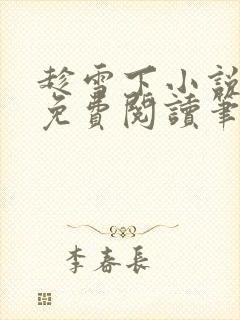 趁雪下小說
免費閱讀筆
李春長